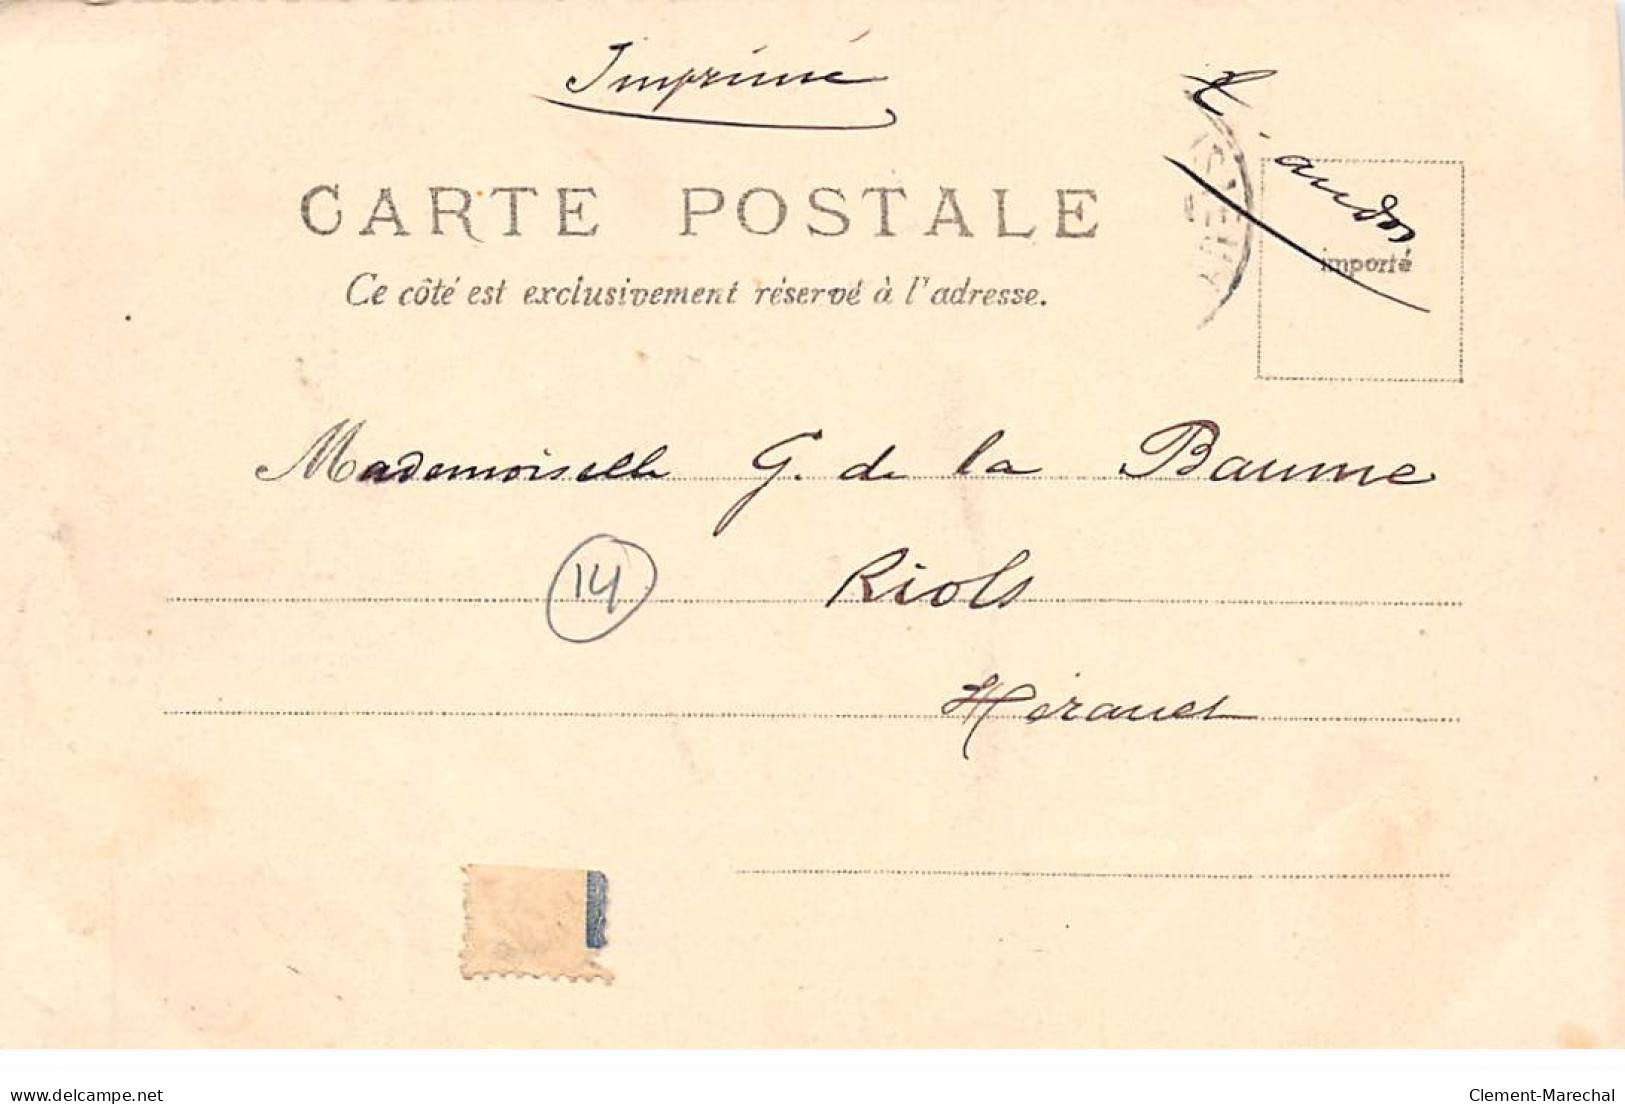 Imprimé
CARTE POSTALE
Ce côté est exclusivement réservé à l'adresse.
importé
Mademoiselle G. de la Baume
14
Riols
Hérault
delcampe.net
Clement-Marechal